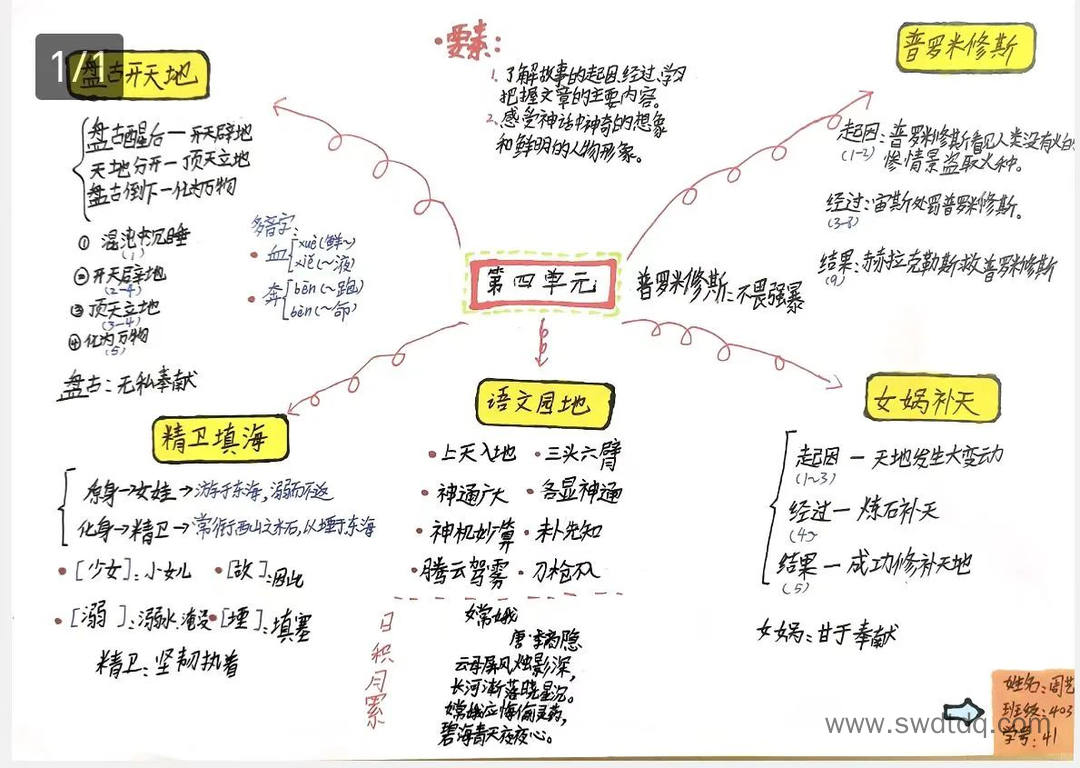 1/1
盘古开天地
盘古醒后—开天辟地
天地分开—顶天立地
盘古倒下—化为万物
① 混沌中沉睡
(1)
②开天辟地
(2-4)
③顶天立地
(3-4)
④化为万物
(5)
盘古:无私奉献
多音字:
血
xuè(鲜~)
xiě(~液)
奔
bēn(~跑)
bèn(~命)
要素:
1.了解故事的起因、经过、学习
把握文章的主要内容。
2.感受神话中神奇的想象
和鲜明的人物形象。
普罗米修斯
起因:普罗米修斯看见人类没有火的
(1-2)
惨情景盗取火种。
经过:宙斯处罚普罗米修斯。
(3-8)
结果:赫拉克勒斯救普罗米修斯
(9)
第四单元
普罗米修斯:不畏强暴
精卫填海
原身→女娃→游于东海,溺而不返
化身→精卫→常衔西山之木石,以堙于东海
[少女]:小女儿
[故]:因此
[溺]:溺水.淹没
[堙]:填塞
精卫:坚韧执着
语文园地
上天入地
三头六臂
神通广大
各显神通
神机妙算
未卜先知
腾云驾雾
刀枪不入
日积月累
嫦娥
唐·李商隐
云母屏风烛影深,
长河渐落晓星沉。
嫦娥应悔偷灵药,
碧海青天夜夜心。
女娲补天
起因—天地发生大变动
(1~3)
经过—炼石补天
(4)
结果—成功修补天地
(5)
女娲:甘于奉献
姓名:周艺
班级:403
学号:41
www.swdtdq.com